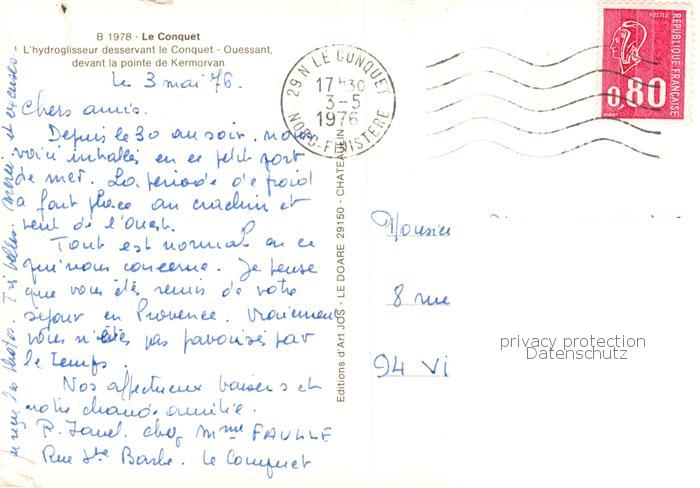 B 1978 - Le Conquet
L'hydroglisseur desservant le Conquet - Ouessant,
devant la pointe de Kermorvan
Le 3 mai 76.
Chers amis.
Depuis le 30 au soir, nous
voici installés en ce petit port
de mer. La période de froid
a fait place au crachin et
vent de l'Ouest.
Tout est normal en ce
qui nous concerne. Je pense
que vous êtes remis de votre
séjour en Provence. Vraiment
vous n'étés pas favorisés par
le temps.
Nos affectueux baisers et
notre chaude amitié.
P. chez Mme FAULLE
Rue Ste Barbe. Le Conquet
reçu les photos. Très belles. Merci. et excuses.
Editions d'Art JOS - LE DOARE 29150 - CHATEAULIN
29 N LE CONQUET
17 H 30
3-5
1976
NORD-FINISTERE
POSTES
REPUBLIQUE FRANÇAISE
0,80
Monsieur
8 rue
94 Vi
privacy protection
Datenschutz